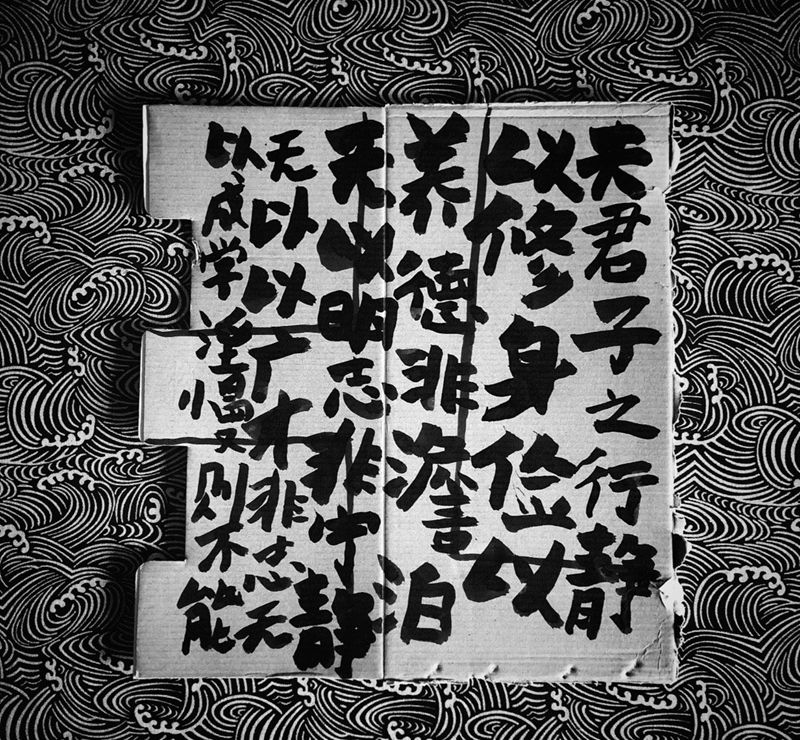 夫君子之行静
以修身俭以
养德非澹泊
无以明志非宁静
无以以广才非志无
以成学淫慢则不能